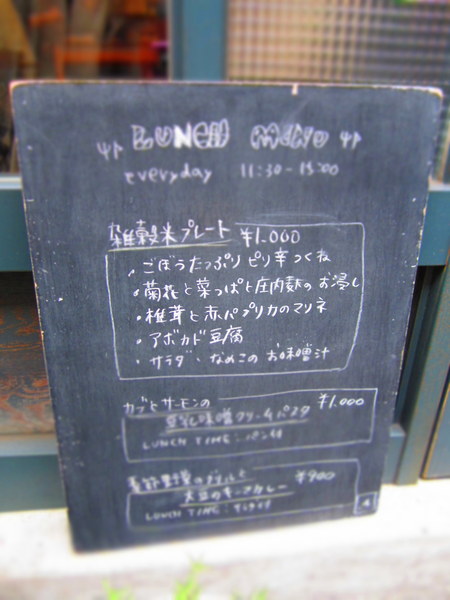 LUNCH MENU
everyday 11:30-15:00
雑穀米プレート ¥1.000
・ごぼうたっぷりピリ辛つくね
・菊花と菜っぱと庄内麩のお浸し
・椎茸と赤パプリカのマリネ
・アボカド豆腐
・サラダ・なめこのお味噌汁
カブとサーモンの ¥1.000
豆乳味噌クリームパスタ
LUNCH TIME:パン付
野菜のグリルと ¥900
大豆のキーマカレー
LUNCH TIME: